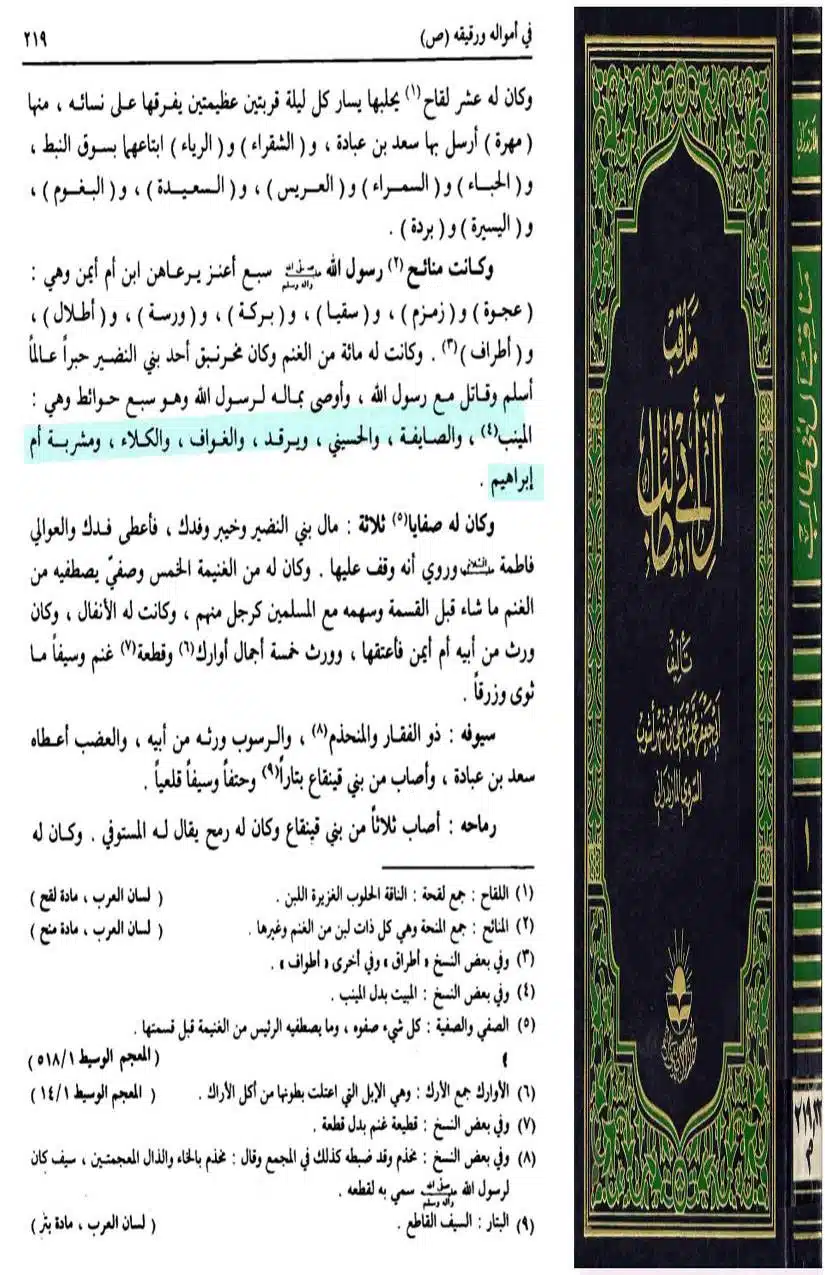 في أمواله ورقيقه (ص) ٢١٩
وكان له عشر لقاح (١) يحلبها يسار كل ليلة قربتين عظيمتين يفرقها على نسائه ، منها
( مهرة ) أرسل بها سعد بن عبادة ، و ( الشقراء ) و ( الرياء ) ابتاعهما بسوق النبط ،
و ( الحباء ) و ( السمراء ) و ( العريس ) ، و ( السعيدة ) ، و ( البغوم ) ،
و ( اليسيرة ) و ( بردة ) .
وكانت منائح (٢) رسول الله صلى الله وآله وسلم سبع أعنز يرعاهن ابن أم أيمن وهي :
( عجوة ) و ( زمزم ) ، و ( سقيا ) ، و ( بركة ) ، و ( ورسة ) ، و ( أطلال ) ،
و ( أطراف ) (٣) . وكانت له مائة من الغنم وكان مخرنبق أحد بني النضير حبراً عالماً
أسلم وقاتل مع رسول الله ، وأوصى بماله لرسول الله وهو سبع حوائط وهي :
المينب (٤) ، والصايفة ، والحسيني ، ويرقد ، والغواف ، والكلاء ، ومشربة أم
إبراهيم .
وكان له صفايا (٥) ثلاثة : مال بني النضير وخيبر وفدك ، فأعطى فدك والعوالي
فاطمة وروي أنه وقف عليها . وكان له من الغنيمة الخمس وصفيّ يصطفيه من
الغنم ما شاء قبل القسمة وسهمه مع المسلمين كرجل منهم ، وكانت له الأنفال ، وكان
ورث من أبيه أم أيمن فأعتقها ، وورث خمسة أجمال أوارك (٦) وقطعة (٧) غنم وسيفاً ما
ثوى وزرقاً .
سيوفه : ذو الفقار والمنحذم (٨) ، والرسوب ورثه من أبيه ، والعضب أعطاه
سعد بن عبادة ، وأصاب من بني قينقاع بتاراً (٩) وحتفاً وسيفاً قلعياً .
رماحه : أصاب ثلاثاً من بني قينقاع وكان له رمح يقال له المستوفي . وكان له
(١) اللقاح : جمع لقحة : الناقة الحلوب الغزيرة اللبن . ( لسان العرب ، مادة لقح )
(٢) المنائح : جمع المنحة وهي كل ذات لبن من الغنم وغيرها . ( لسان العرب ، مادة منح )
(٣) وفي بعض النسخ « أطراق » وفي أخرى « أطواف » .
(٤) وفي بعض النسخ : المبيت بدل المينب .
(٥) الصفي والصفية : كل شيء صفوه ، وما يصطفيه الرئيس من الغنيمة قبل قسمتها .
( المعجم الوسيط ٥١٨/١ )
(٦) الأوارك جمع الأرك : وهي الإبل التي اعتلت بطونها من أكل الأراك . ( المعجم الوسيط ١٤/١ )
(٧) وفي بعض النسخ : قطيعة غنم بدل قطعة .
(٨) وفي بعض النسخ : مخذم وقد ضبطه كذلك في المجمع وقال : مخذم بالخاء والذال المعجمتين ، سيف كان
لرسول الله صلى الله وآله وسلم سمي به لقطعه .
(٩) البتار : السيف القاطع . ( لسان العرب ، مادة بتر )
مناقب
آل أبي طالب
تأليف
أبي جعفر محمد بن علي بن شهر آشوب
السروي المازندراني
مناقب آل أبي طالب
١